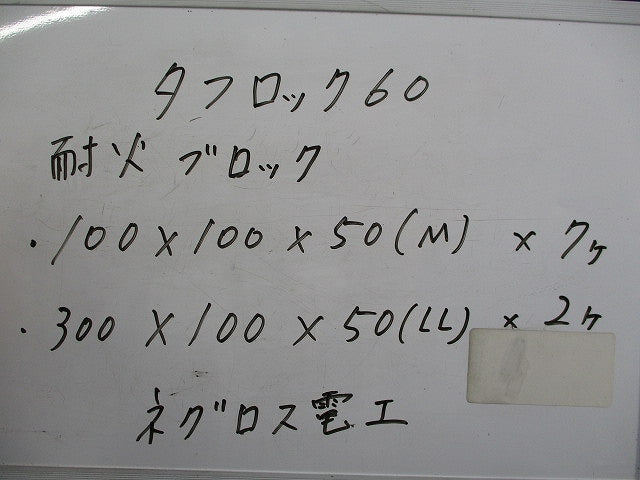 タフロック60
耐火ブロック
・100×100×50(M) ×7ヶ
・300×100×50(LL) ×2ヶ
ネグロス電工